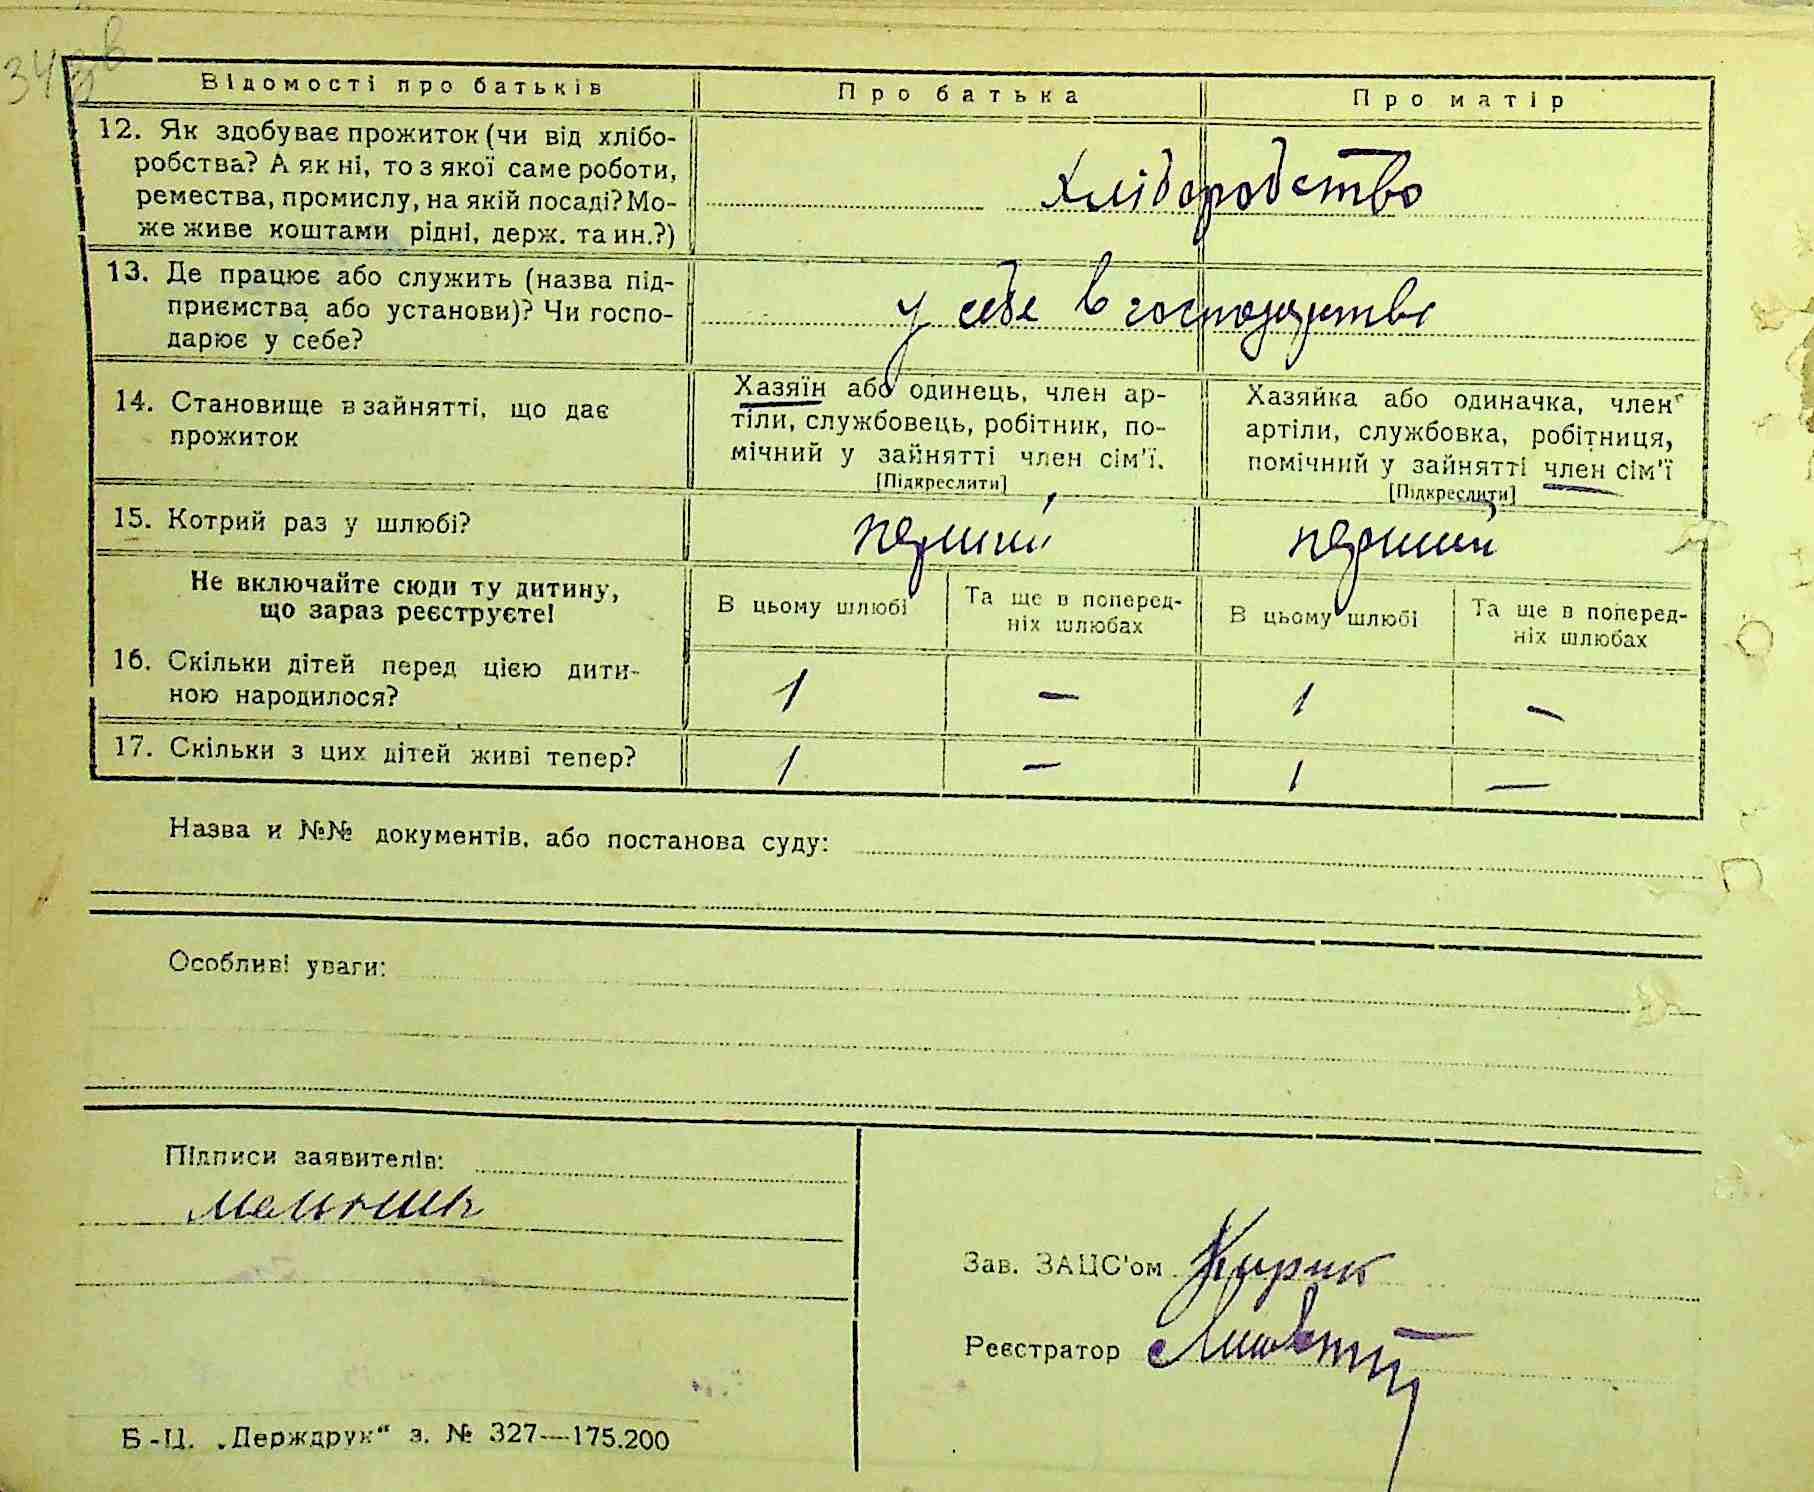 34 зв
Відомості про батьків
Про батька
Про матір
12. Як здобуває прожиток (чи від хлібо-
робства? А як ні, то з якої саме роботи,
ремества, промислу, на якій посаді? Мо-
же живе коштами рідні, держ. та ин.?)
хліборобство
13. Де працює або служить (назва під-
приємства або установи)? Чи госпо-
дарює у себе?
у себе в господарстві
14. Становище в зайнятті, що дає
прожиток
Хазяїн або одинець, член ар-
тіли, службовець, робітник, по-
мічний у зайнятті член сім'ї.
[Підкреслити]
Хазяйка або одиначка, член
артіли, службовка, робітниця,
помічний у зайнятті член сім'ї
[Підкреслити]
15. Котрий раз у шлюбі?
перший
перший
Не включайте сюди ту дитину,
що зараз реєструєте!
В цьому шлюбі
Та ще в поперед-
ніх шлюбах
В цьому шлюбі
Та ще в поперед-
ніх шлюбах
16. Скільки дітей перед цією дити-
ною народилося?
1 – 1 –
17. Скільки з цих дітей живі тепер?
1 – 1 –
Назва и №№ документів, або постанова суду:
Особливі уваги:
Підписи заявителів:
Зав. ЗАЦС'ом
Реєстратор
Б-Ц. „Держдрук“ з. № 327—175.200